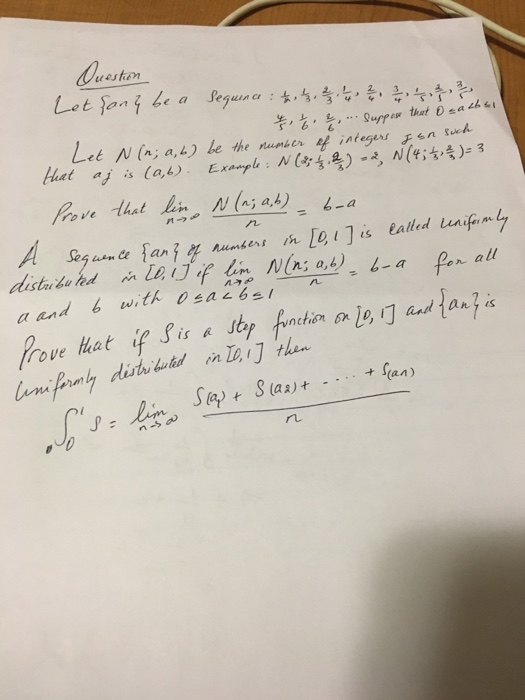 Question
Let {an} be a Sequence : 1/2, 1/3, 2/3, 1/4, 2/4, 3/4, 1/5, 2/5, 3/5,
4/5, 1/6, 2/6, ... Suppose that 0 ≤ a < b ≤ 1
Let N(n; a, b) be the number of integers j ≤ n such
that aj is (a, b). Example: N(2; 1/3, 2/3) = 2, N(4; 1/3, 2/3) = 3
Prove that lim n→∞ N(n; a, b)/n = b-a
A Sequence {an} of numbers in [0, 1] is called uniformly
distributed in [0, 1] if lim n→∞ N(n; a, b)/n = b-a for all
a and b with 0 ≤ a < b ≤ 1
Prove that if S is a step function on [0, 1] and {an} is
Uniformly distributed in [0, 1] then
∫₀¹ S = lim n→∞ (S(a₁) + S(a2) + ..... + S(an))/n